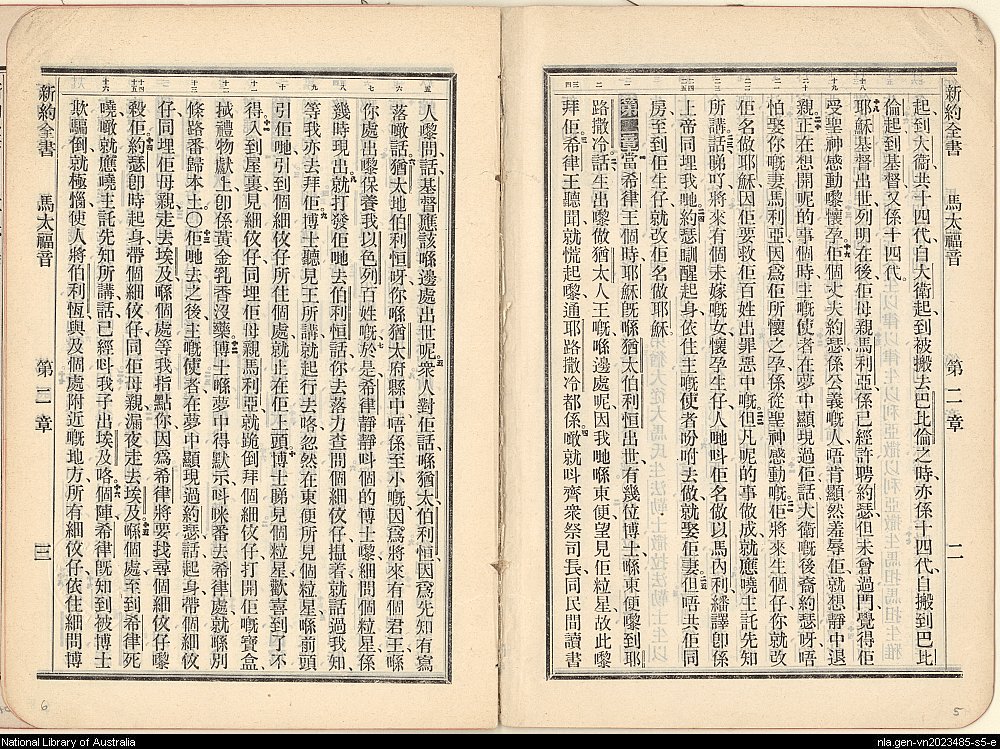 新約全書 馬太福音 第二章 二
起到大衛共十四代、自大衛起到被搬去巴比倫之時、亦係十四代、自搬到巴比
倫起到基督又係十四代。
耶穌基督出世列明在後、佢母親馬利亞、係已經許聘約瑟、但未曾過門、覺得佢
受聖神感動嚟懷孕、佢個丈夫約瑟係公義嘅人、唔肯顯然羞辱佢、就想靜中退
親、正在想開呢的事個時、主嘅使者在夢中顯現過佢話、大衛嘅後裔約瑟呀、唔
怕娶你嘅妻馬利亞、因為佢所懷之孕、係從聖神感動嘅、佢將來生個仔、你就改
佢名做耶穌、因佢要救佢百姓出罪惡中嘅、但凡呢的事做成、就應嘵主託先知
所講話、睇吖、將來有個未嫁嘅女懷孕生仔、人哋呌佢名做以馬內利、繙譯即係
上帝同埋我哋、約瑟瞓醒起身、依住主嘅使者吩咐去做、就娶佢妻、但唔共佢同
房、至到佢生仔、就改佢名做耶穌、
第二章 當希律王個時、耶穌既喺猶太伯利恒出世、有幾位博士喺東便嚟到耶
路撒冷話、生出嚟做猶太人王嘅喺邊處呢、因我哋喺東便望見佢粒星、故此嚟
拜佢、希律王聽聞、就慌起嚟、通耶路撒冷都係噉、就呌齊衆祭司長、同民間讀書
人嚟問話、基督應該喺邊處出世呢、衆人對佢話、喺猶太伯利恒、因為先知有寫
落噉話、猶太地伯利恒呀、你喺猶太府縣中、唔係至小嘅、因為將來有個君王、喺
你處出嚟、保養我以色列百姓嘅、於是希律靜靜呌個的博士嚟、細問個粒星、係
幾時現出、就打發佢哋去伯利恒話、你去落力查問個細蚊仔、搵着就話過我知、
等我亦去拜佢、博士聽見王所講就起行去、咯忽然在東便所見個粒星、喺前頭
引佢哋、引到個細蚊仔所住個處、就正在佢上頭、博士睇見個粒星、歡喜到了不
得、入到屋裏、見細蚊仔同埋佢母親馬利亞、就跪倒拜個細蚊仔、打開佢嘅寶盒、
拭禮物獻上、卽係黃金乳香沒藥、博士喺夢中得默示、呌咪番去希律處、就喺別
條路番歸本土、〇佢哋去之後、主嘅使者在夢中顯現過約瑟話、起身帶個細蚊
仔、同埋佢母親、走去埃及、喺個處等我指點你、因為希律將要找尋個細蚊仔嚟
殺佢、約瑟卽時起身、帶個細蚊仔同佢母親、漏夜走去埃及、喺個處至到希律死
嘵、噉就應嘵主託先知所講話、已經呌我子出埃及咯、個陣希律旣知到被博士
欺騙倒、就極惱、使人將伯利恆、與及個處附近嘅地方、所有細蚊仔、依住細問博
新約全書 馬太福音 第二章 三
6
5
National Library of Australia
nla.gen-vn2023485-s5-e